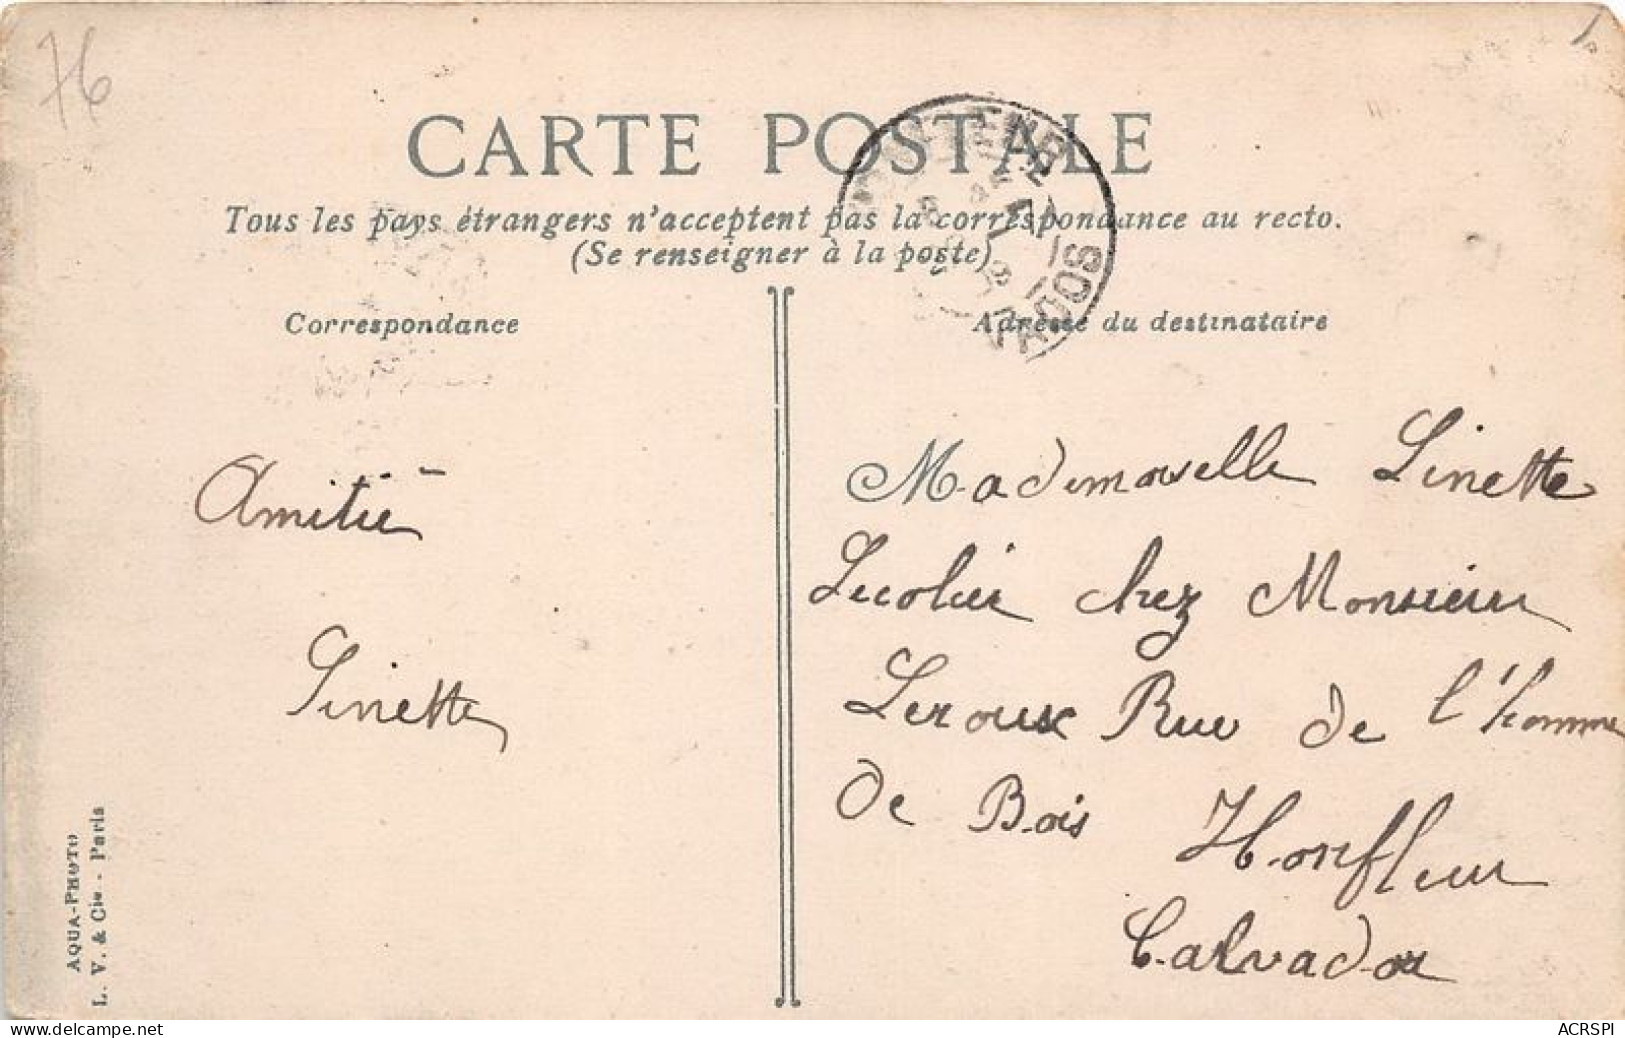 76
CARTE POSTALE
Tous les pays étrangers n'acceptent pas la correspondance au recto.
(Se renseigner à la poste)
Correspondance
Adresse du destinataire
Amitié
Linette
Mademoiselle Linette
Lecolier chez Monsieur
Leroux Rue de l'homme
de Bois Honfleur
Calvados
AQUA-PHOTO
L. V. & Cie - Paris
www.delcampe.net
ACRSPI